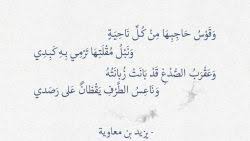 وَقَوْسُ حَاجِبِهَا مِنْ كُلِّ نَاحِيَةٍ
وَنَبْلُ مُقْلَتِهَا تَرْمِي بِهِ كَبِدِي
وَعَقْرَبُ الصُّدْغِ قَدْ بَانَتْ زُبَانَتُهُ
وَنَاعِسُ الطَّرْفِ يَقْظَانٌ عَلى رَصَدي
- يزيد بن معاوية